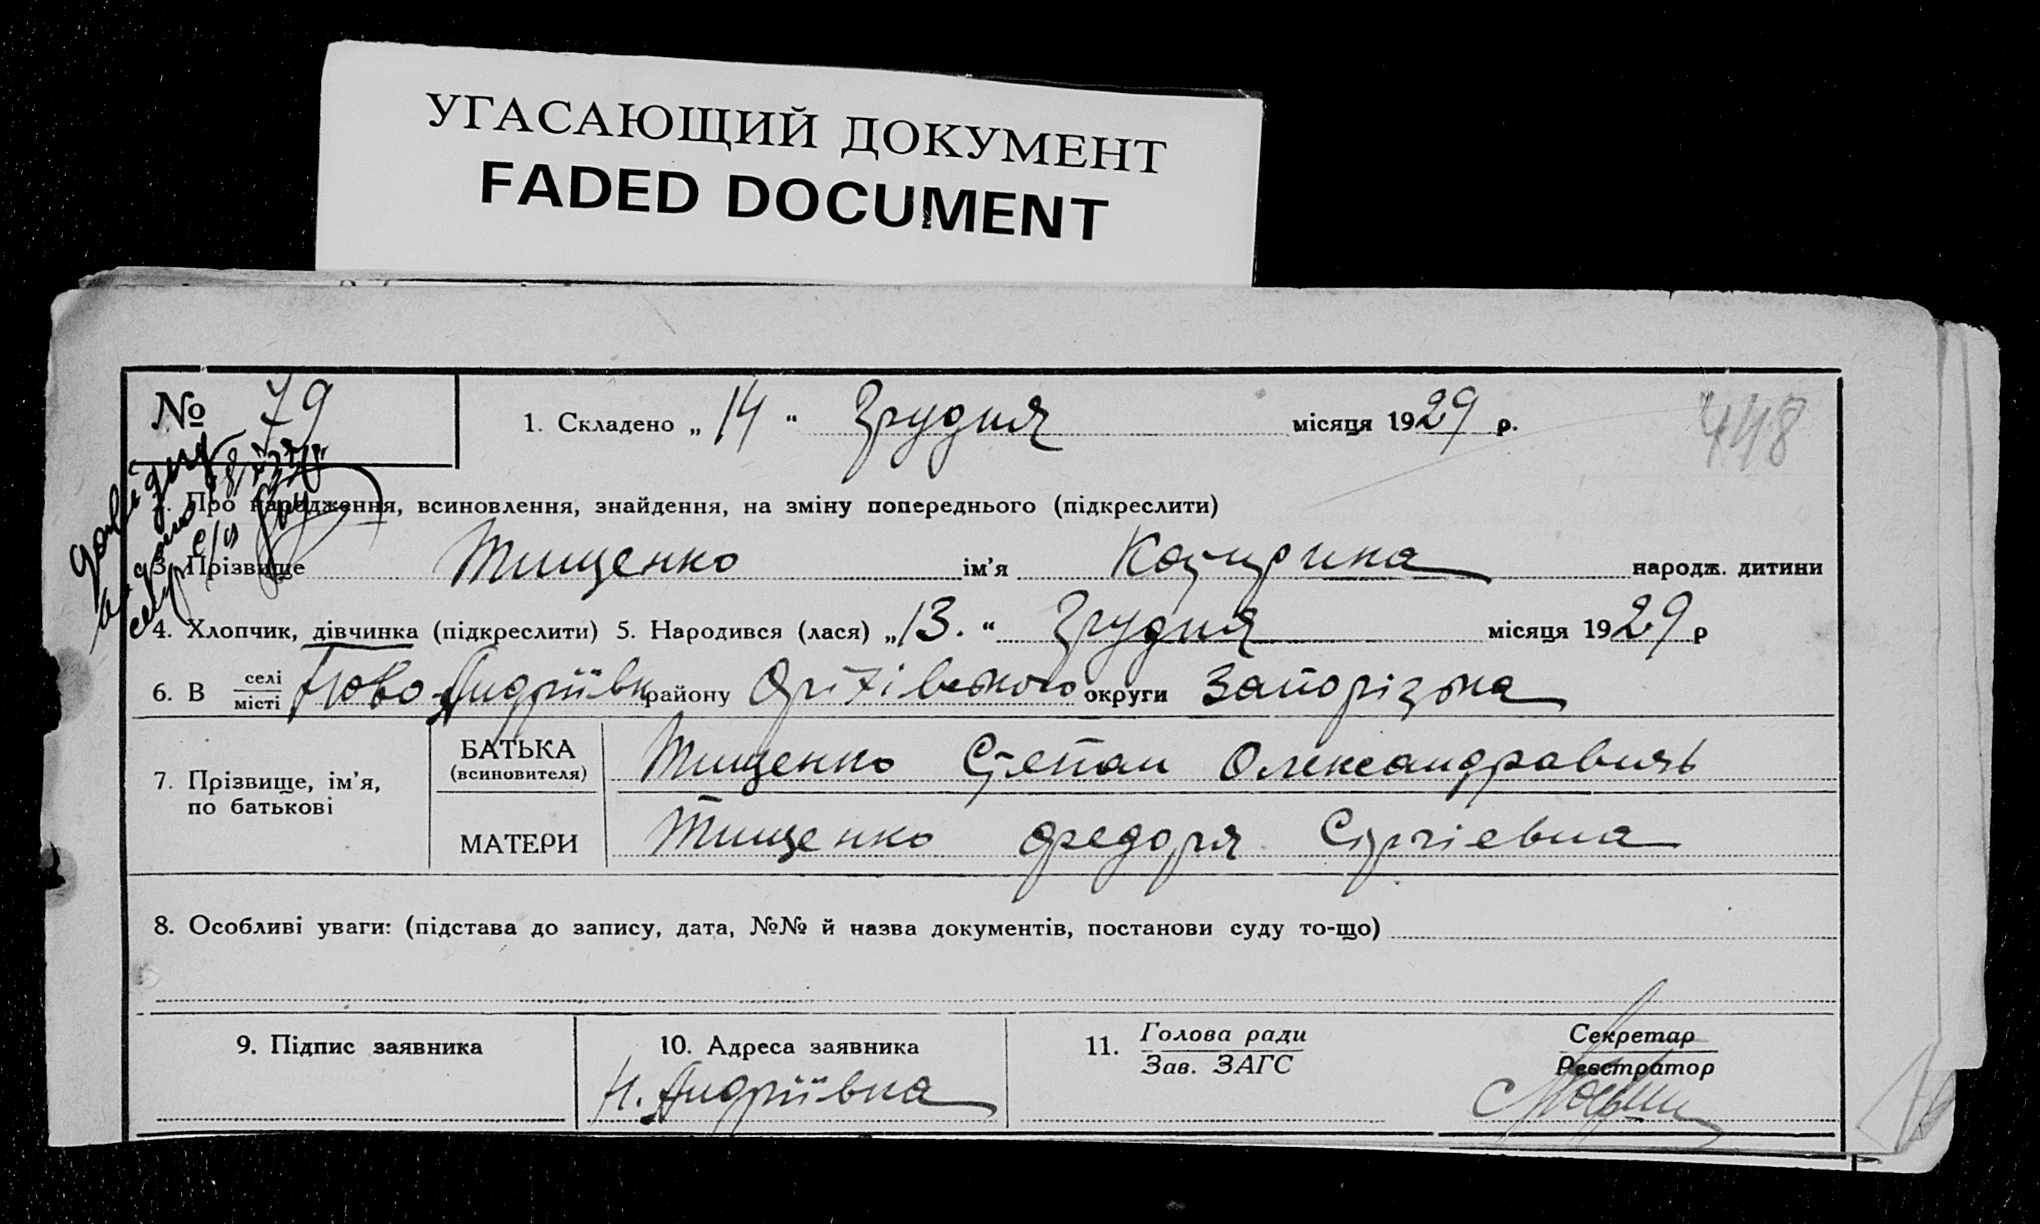 УГАСАЮЩИЙ ДОКУМЕНТ
FADED DOCUMENT
№ 79
1. Складено „14“ Грудня місяця 1929 р.
448
2. Про народження, всиновлення, знайдення, на зміну попереднього (підкреслити)
3. Прізвище Тищенко ім’я Катирина народж. дитини
4. Хлопчик, дівчинка (підкреслити) 5. Народився (лася) „13.“ Грудня місяця 1929 р
6. В селі місті Ново-Андріївк району Оріхівського округи Запорізька
7. Прізвище, ім’я, по батькові
БАТЬКА (всиновителя) Тищенко Степан Олександравичь
МАТЕРИ Тищенко Федоря Сиргіевна
8. Особливі уваги: (підстава до запису, дата, №№ й назва документів, постанови суду то-що)
9. Підпис заявника
10. Адреса заявника
Н. Андріївка
11. Голова ради
Зав. ЗАГС
Секретар
Реєстратор